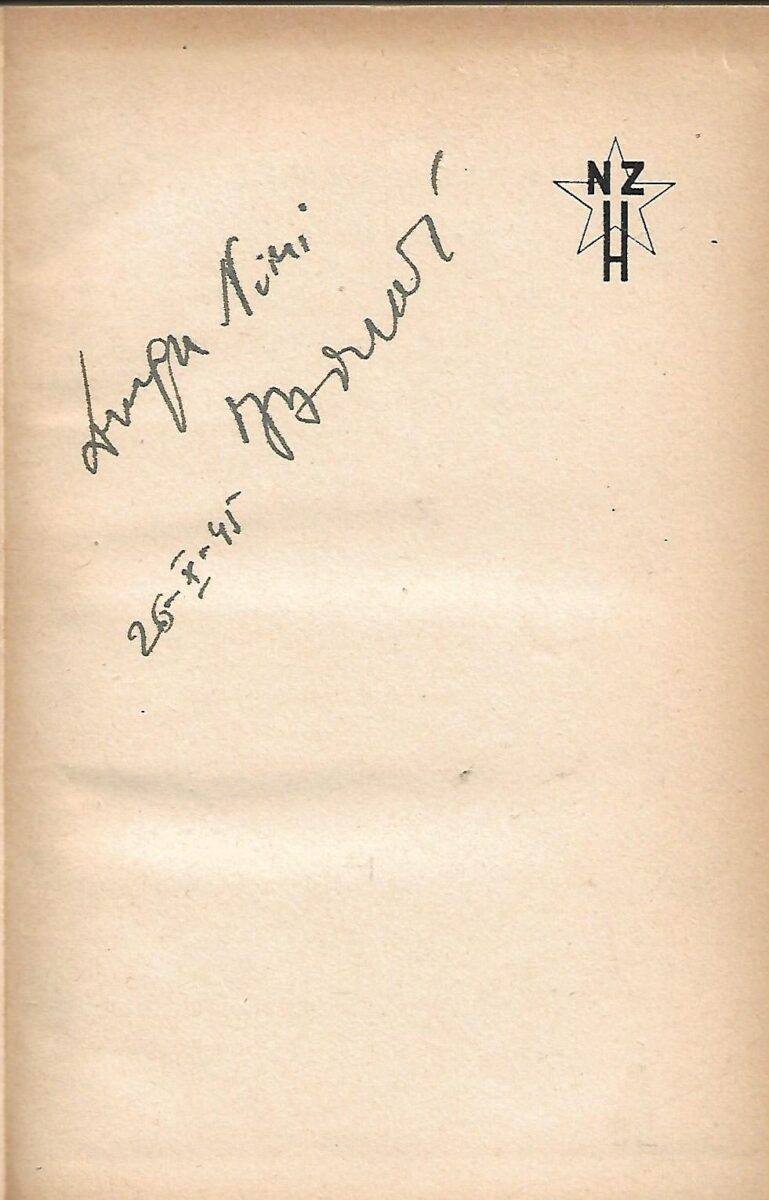 NZ
H
Drugu Nini
26-X-45